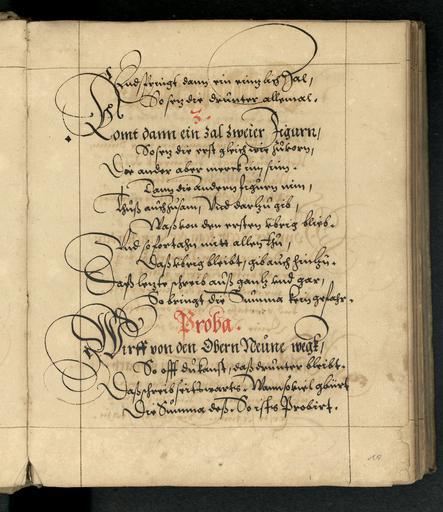 Und springt dann ein einzlich Zal,
So setz die drunter allemal.
3.
Komt dann ein zal zweier Figurn,
So setz die erst gleich wie zuvorn,
Die ander aber merck im sinn.
Dann die andern figurn nim,
Thuß auch zusam, Und darzu gib,
Waß von den ersten ubrig blieb.
Und so fortahn mitt allen thu,
Waß ubrig bleibt, gib auch hinzu.
Daß letzte schreib auß gantz und gar,
So bringt die Summa kein gefahr.
Proba.
Wirff von den Obern Neune wegk,
So offt du kanst, daß drunter bleibt.
Daß schreib seitwarts. Wann sovil gbürt
Die Summa deß. So ists Probirt.